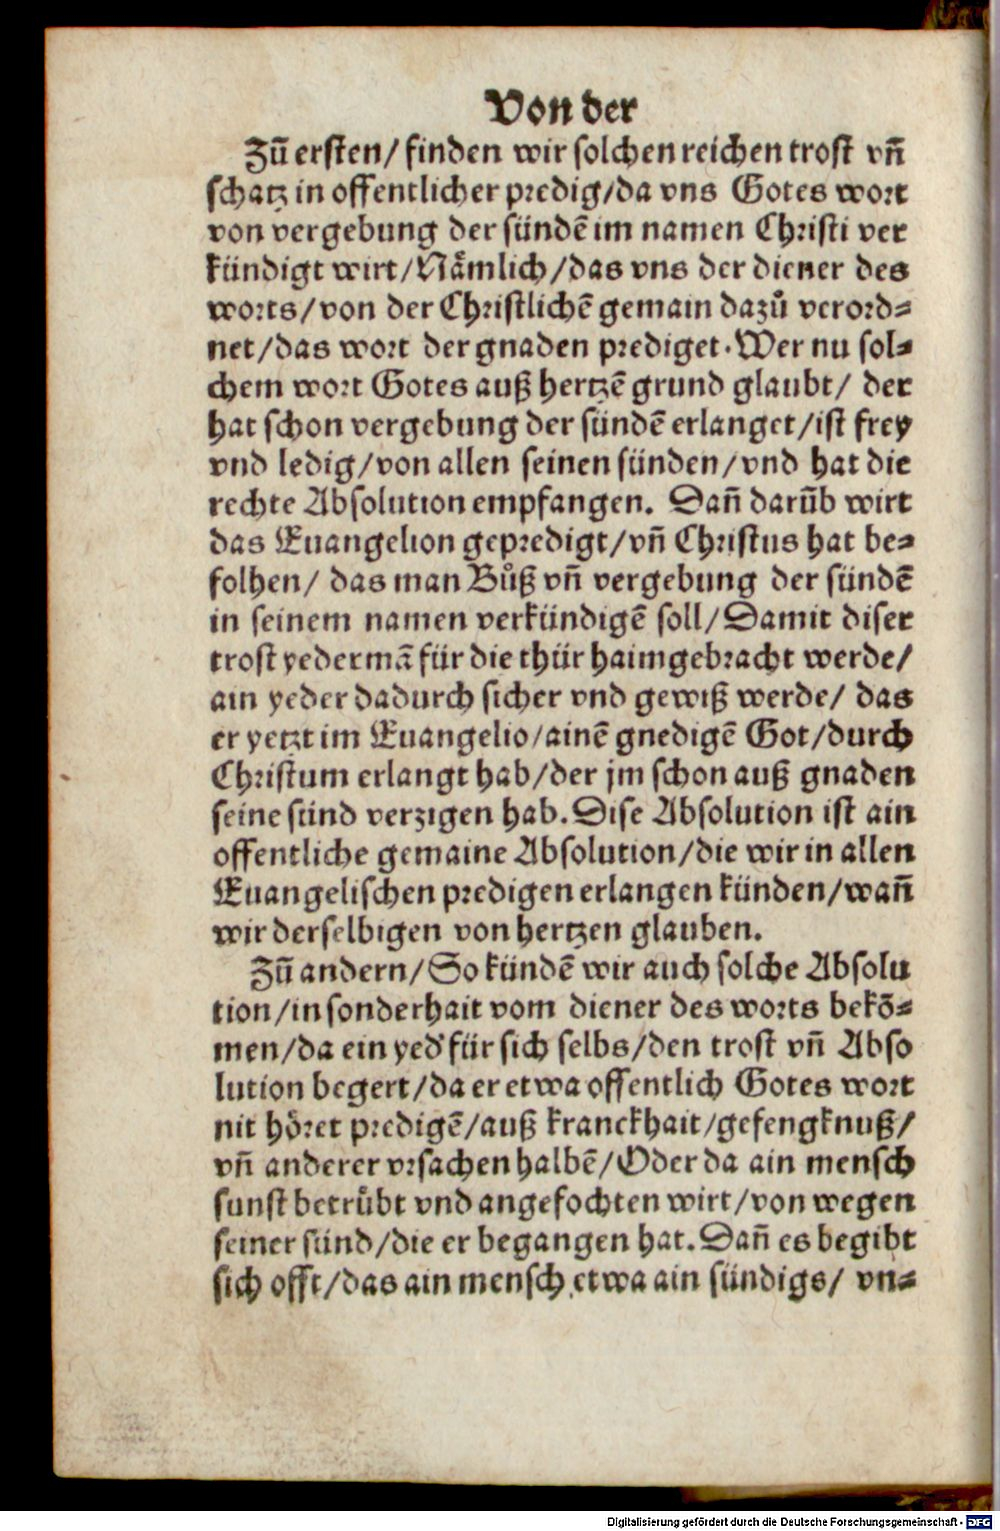 Von der
Zů ersten/ finden wir solchen reichen trost vñ
schatz in offentlicher predig/da vns Gotes wort
von vergebung der sündẽ im namen Christi ver
kündigt wirt/Nämlich/das vns der diener des
worts/von der Christlichẽ gemain dazů verord⸗
net/das wort der gnaden prediget. Wer nu sol⸗
chem wort Gotes auß hertzẽ grund glaubt/ der
hat schon vergebung der sündẽ erlanget/ist frey
vnd ledig/von allen seinen sünden/vnd hat die
rechte Absolution empfangen. Dañ darũb wirt
das Euangelion gepredigt/vñ Christus hat be⸗
folhen/ das man Bůß vñ vergebung der sündẽ
in seinem namen verkündigẽ soll/Damit diser
trost yedermã für die thür haimgebracht werde/
ain yeder dadurch sicher vnd gewiß werde/ das
er yetzt im Euangelio/ainẽ gnedigẽ Got/durch
Christum erlangt hab/der jm schon auß gnaden
seine sünd verzigen hab. Dise Absolution ist ain
offentliche gemaine Absolution/die wir in allen
Euangelischen predigen erlangen künden/wañ
wir derselbigen von hertzen glauben.
Zů andern/So kündẽ wir auch solche Absolu
tion/in sonderhait vom diener des worts bekõ⸗
men/da ein yed' für sich selbs/den trost vñ Abso
lution begert/da er etwa offentlich Gotes wort
nit höret predigẽ/auß kranckhait/gefengknuß/
vñ anderer vrsachen halbẽ/Oder da ain mensch
sunst betrůbt vnd angefochten wirt/von wegen
seiner sünd/die er begangen hat. Dañ es begibt
sich offt/das ain mensch etwa ain sündigs/ vn⸗
Digitalisierung gefördert durch die Deutsche Forschungsgemeinschaft - DFG